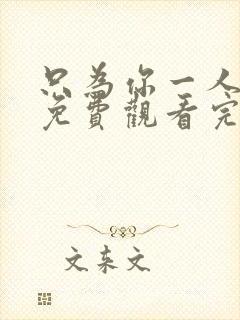 只為你一人
免費觀看完
文来文